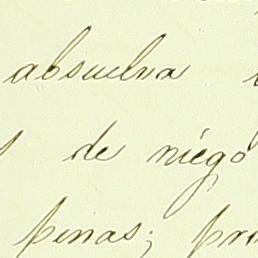 absuelva
de niego
penas; pro